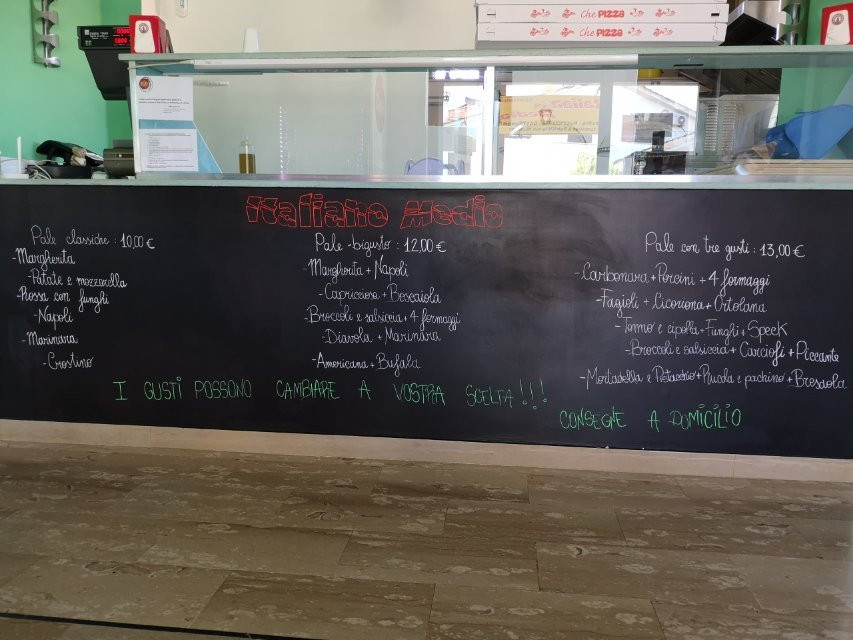 Che PIZZA
Che PIZZA
Italiano Medio
Pale classiche : 10,00 €
-Margherita
-Patate e mozzarella
-Rossa con funghi
-Napoli
-Marinara
-Crostino
Pale -bigusto : 12,00 €
-Margherita + Napoli
-Capricciosa + Boscaiola
-Broccoli e salsiccia + 4 formaggi
-Diavola + Marinara
-Americana + Bufala
Pale con tre gusti : 13,00 €
-Carbonara + Porcini + 4 formaggi
-Fagioli + Licoziona + Ortolana
-Tonno e cipolla + Funghi + Speck
-Broccoli e salsiccia + Carciofi + Piccante
-Mortadella e Pistacchio + Rucola e pachino + Bresaola
I GUSTI POSSONO CAMBIARE A VOSTRA SCELTA!!!
CONSEGNE A DOMICILIO